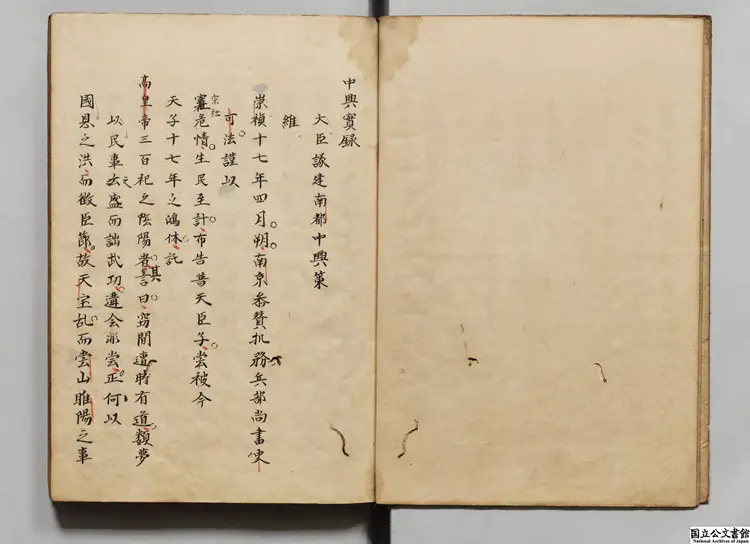 中興實録
大臣議建南都中興策
維
崇禎十七年四月朔南京叅賛机務兵部尚書史
可法謹以
宗社
危情生民至計布告普天臣子嘗被今
天子十七年之鴻休託
高皇帝三百祀之陰陽者其言曰窃聞遭時有道類夢
以民事去盛而詘武功遘会非嘗正何以
國恩之洪而徵臣節故天宝乱而雲山睢陽之事
国立公文書館
National Archives of Japan